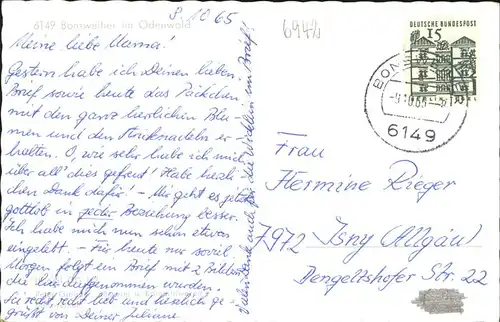 8.10.65
6942
6149 Bonsweiher im Odenwald
Meine liebe Mama!
Gestern habe ich Deinen lieben
Brief sowie heute das Päckchen
mit den ganz herrlichen Blu-
men und den Stricknadeln er-
halten. O, wie sehr habe ich mich
über all' dies gefreut! Habe herzli-
chen Dank dafür! - Mir geht es jetzt
gottlob in jeder Beziehung besser.
Ich habe mich nun schon etwas
eingelebt. - Für heute nur soviel.
Morgen folgt ein Brief mit 2 Bildern,
die hier aufgenommen wurden.
Sei recht, recht lieb und herzlich ge-
grüßt von Deiner Juliane
Vielen Dank auch für die im Brief!
DEUTSCHE BUNDESPOST
15
6149
Frau
Hermine Rieger
7972 Isny (Allgäu)
Dengeltshofer Str. 22